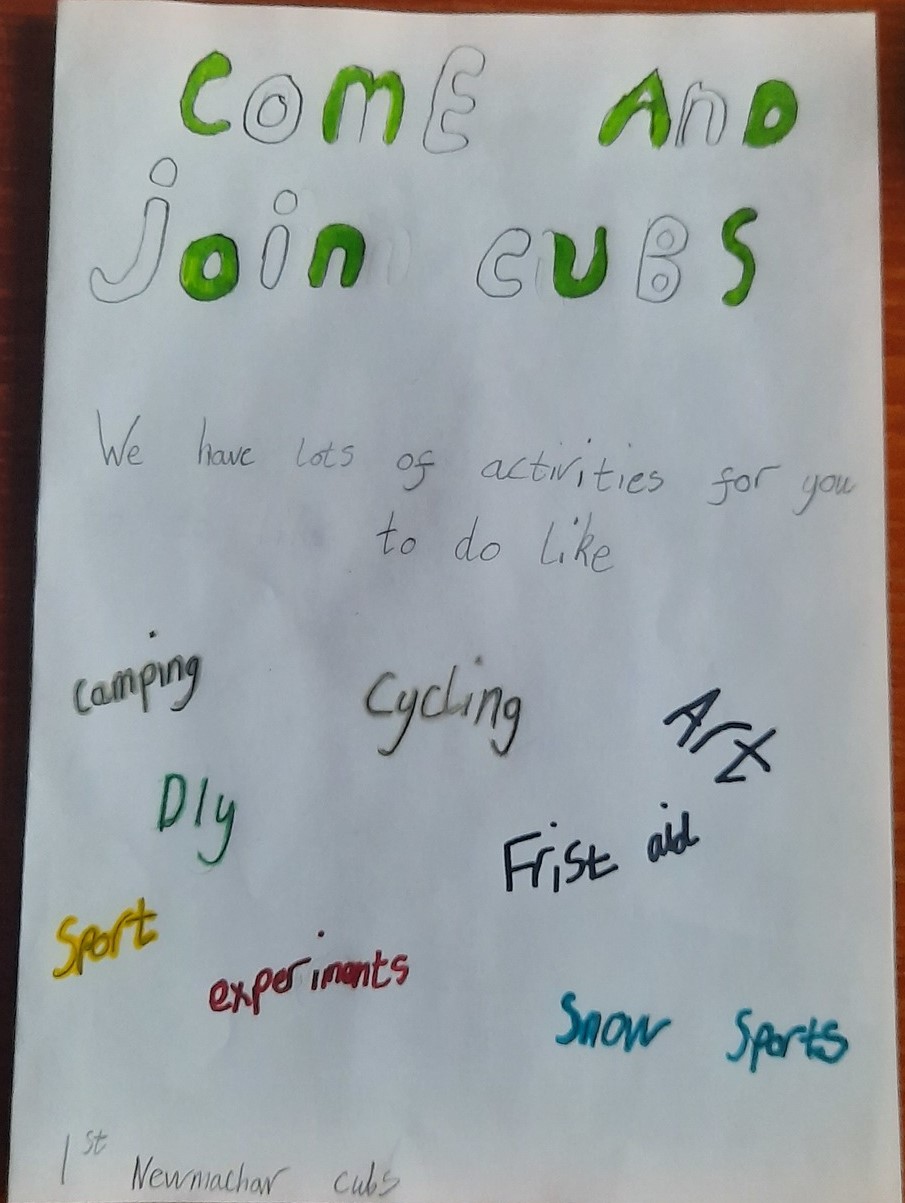 COME AnD
JOin CUBS
We have lots of activities for you
to do like
Camping
Cycling
Art
DIy
Frist aid
Sport
experiments
Snow Sports
1st Newmachar cubs